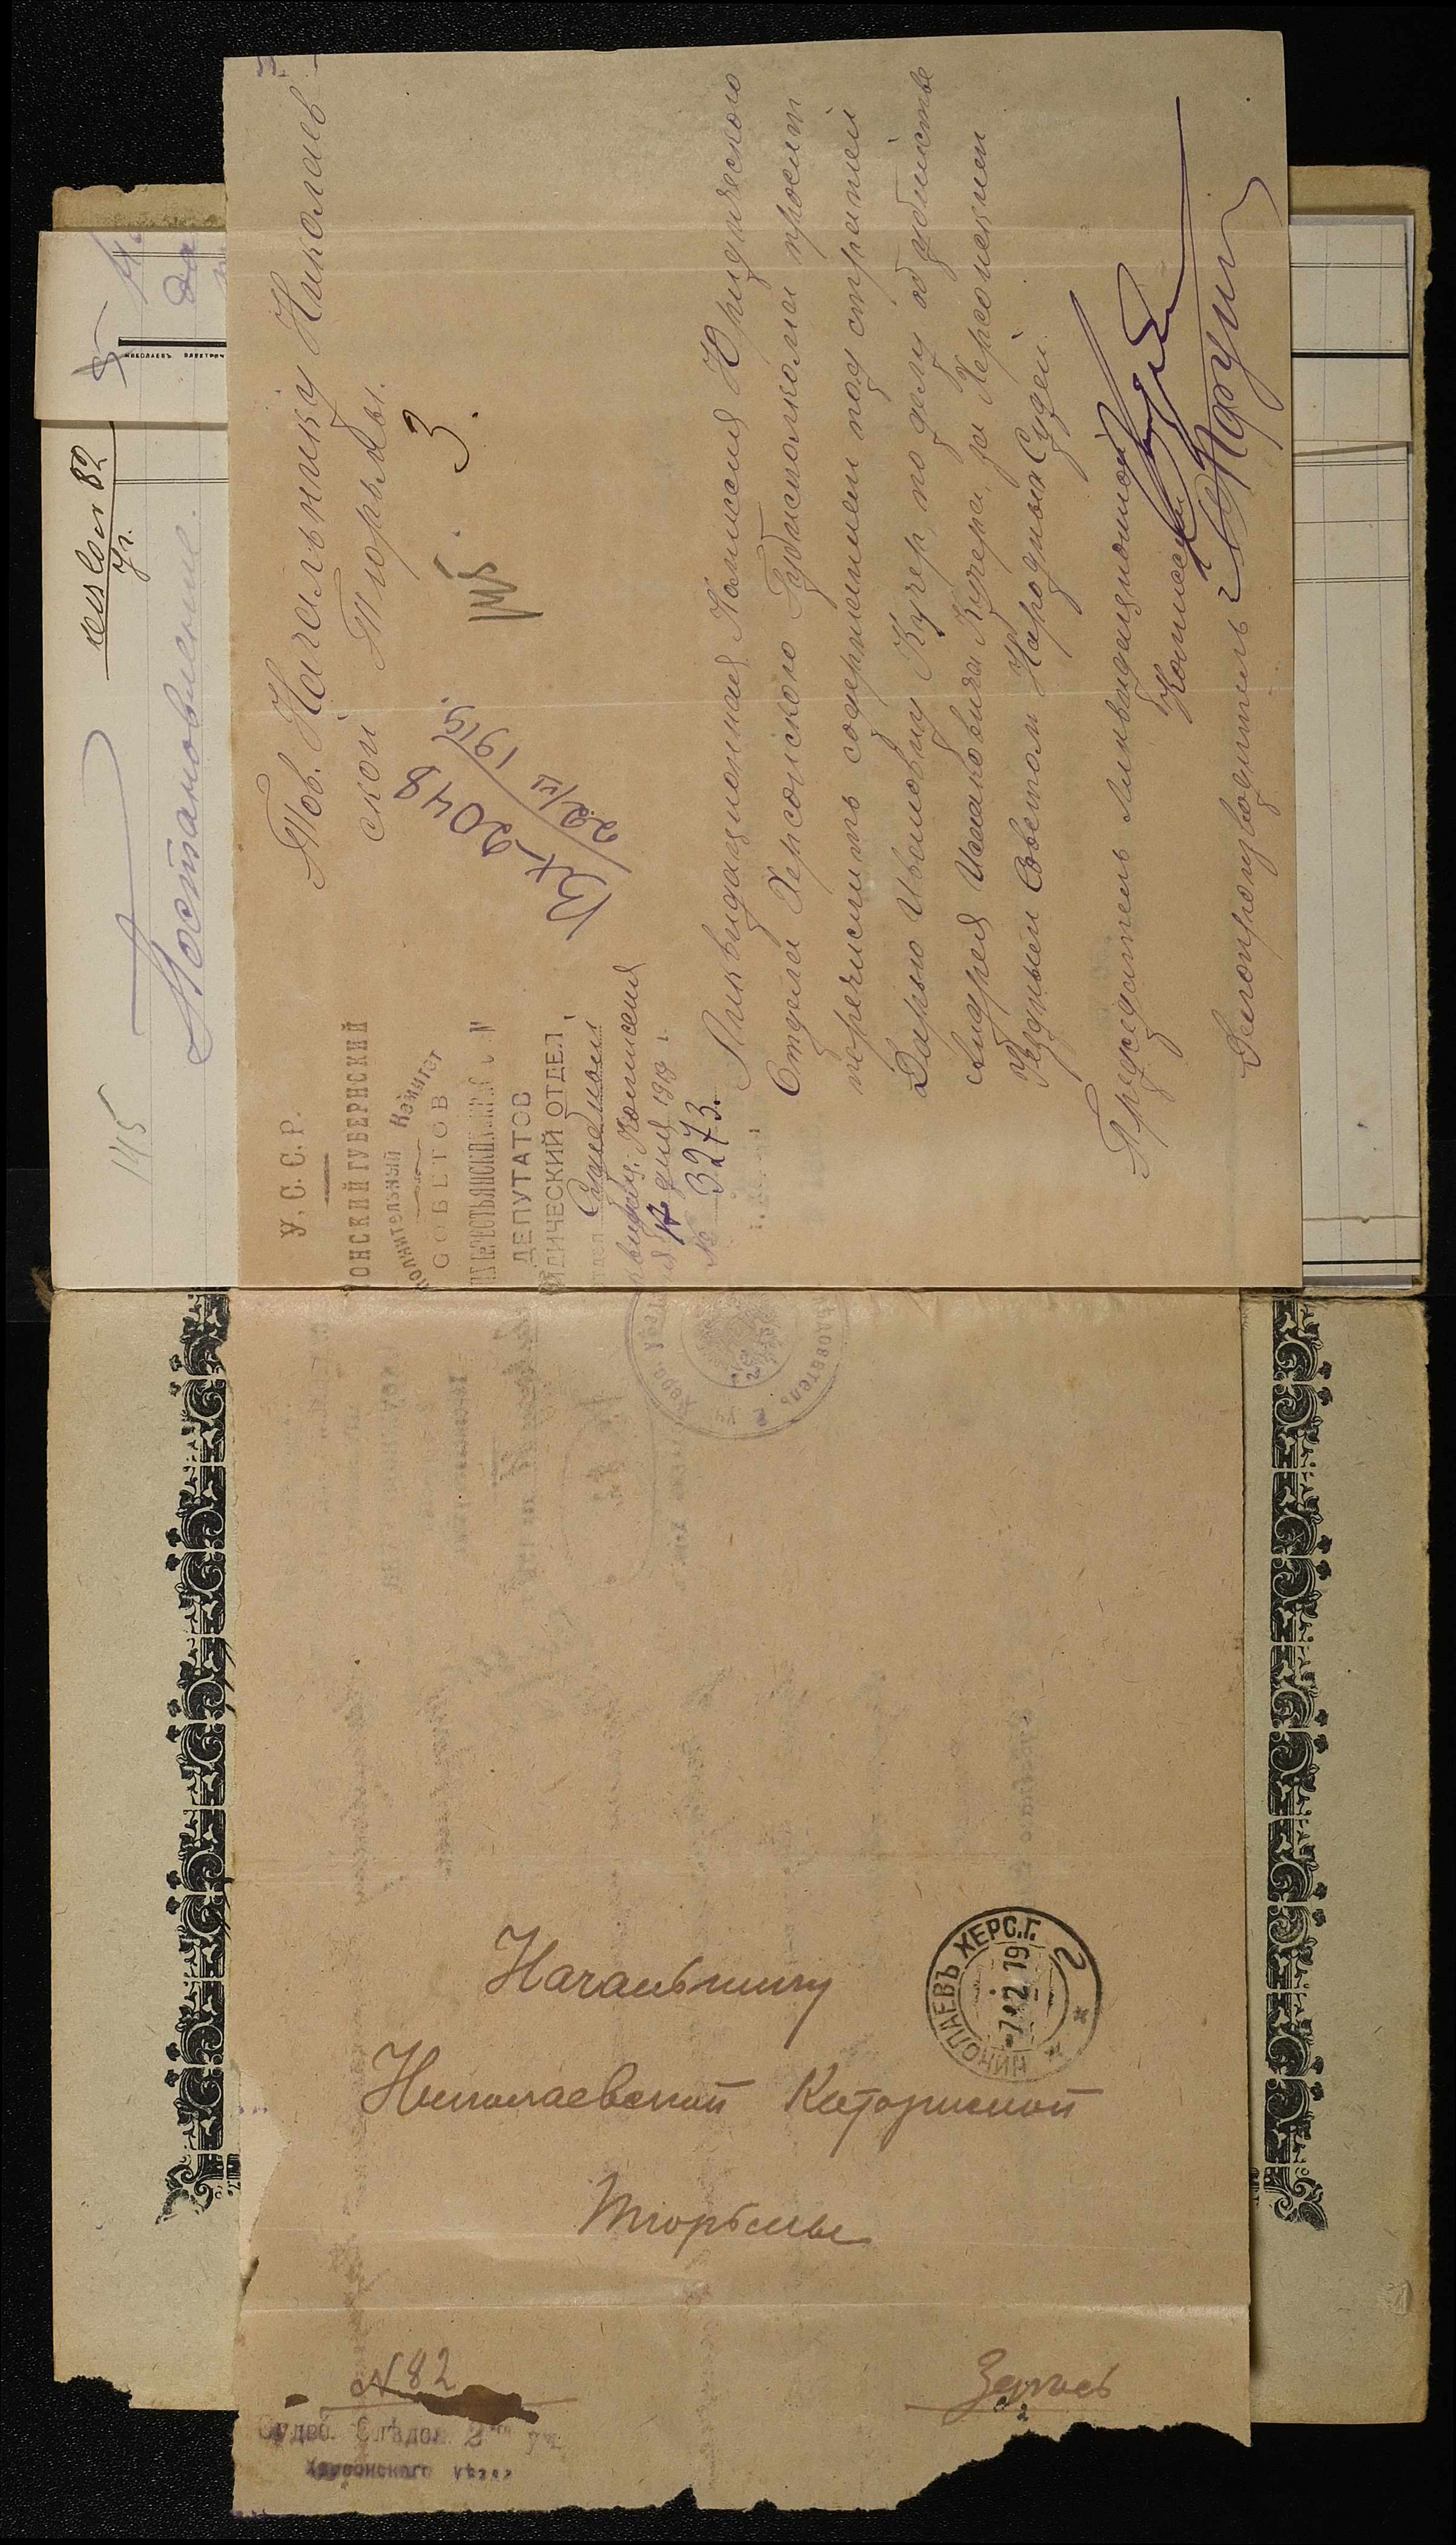 145
Постановление.
82
НИКОЛАЕВЪ ЭЛЕКТРИЧ
да
У. С. С. Р.
ОНСКИЙ ГУБЕРНСКИЙ
полнительный Комитет
СОВЕТОВ
ДЕПУТАТОВ
ИДИЧЕСКИЙ ОТДЕЛ
Комиссия
дня 1919 г.
№ 3273.
Тов. Начальнику Николаев
ской Тюрьмы.
3.
Вх 2048
22/VI 1919.
Ликвидационная Комиссия Юридического
Отдела Херсонского Губисполкома просит
перечислить содержанием под стражей
Дарью Ивановну Кучер, по делу об убийстве
Андрея Исаковича Кучера, за Херсонским
Уездным Советом Народных Судей.
Председатель Ликвидационной
Комиссии
Делопроизводитель
Начальнику
Николаевской Каторжной
Тюрьмы
НИКОЛАЕВЪ ХЕРС.Г.
7 12 19
2
№ 82
Здесь
Судеб. Слѣдов. 2го уч.
Херсонского уѣзда